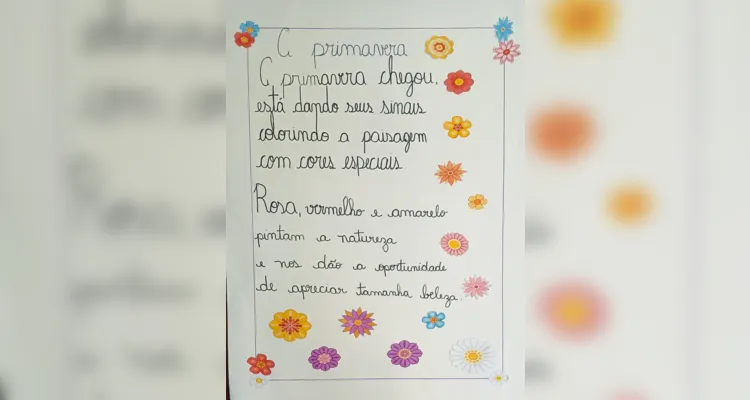 A primavera
A primavera chegou,
está dando seus sinais
colorindo a paisagem
com cores especiais
Rosa, vermelho e amarelo
pintam a natureza
e nos dão a oportunidade
de apreciar tamanha beleza.